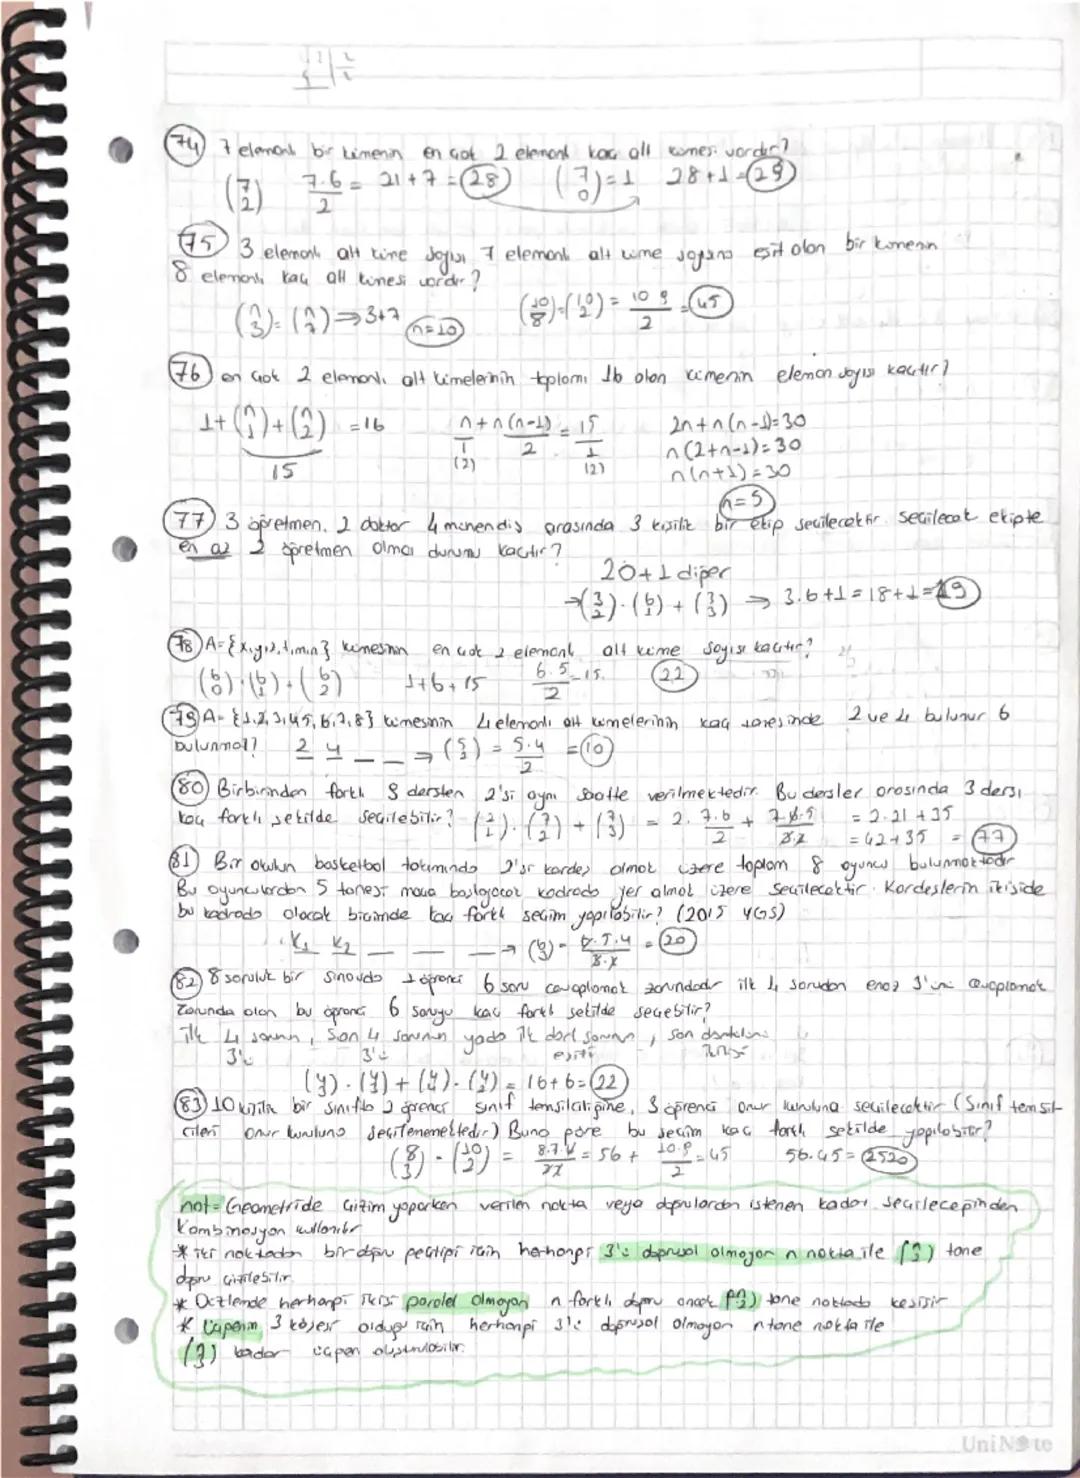 74) 7 elemanlı bir kümenin en çok 2 elemanlı kaç alt kümesi vardır?
(7 2) 7.6/2 = 21+7 = 28 (7 0) = 1 28+1 = 29
75) 3 elemanlı alt küme sayısı 7 elemanlı alt küme sayısına eşit olan bir kümenin
8 elemanlı kaç alt kümesi vardır?
(n 3) = (n 7) ⇒ 3+7 n=10 (10 8) = (10 2) = 10 9/2 = 45
76) en çok 2 elemanlı alt kümelerinin toplamı 16 olan kümenin eleman sayısı kaçtır?
1+(n 1)+(n 2) = 16 n/1 + n(n-1)/2 = 15/1 2n+n(n-1)=30
15 (2) (2) n(2+n-1)=30
n(n+1)=30
n=5
77) 3 öğretmen, 2 doktor 4 mühendis arasında 3 kişilik bir ekip seçilecektir. Seçilecek ekipte
en az 2 öğretmen olma durumu kaçtır?
20+1 diğer
→(3 2).(6 1)+(3 3) ⇒ 3.6+1=18+1=19
78) A={x,y,z,t,m,n} kümesinin en çok 2 elemanlı alt küme sayısı kaçtır?
(6 0)+(6 1)+(6 2) 1+6+15 6.5/2=15 22
79) A={1,2,3,4,5,6,7,8} kümesinin 4 elemanlı alt kümelerinin kaç tanesinde 2 ve 4 bulunur 6
bulunmaz? 2 4 _ _ ⇒ (5 2) = 5.4/2 = 10
80) Birbirinden farklı 9 dersten 2'si aynı saatte verilmektedir. Bu dersler arasında 3 dersi
kaç farklı şekilde seçilebilir? (2 1).(7 2)+(7 3) = 2. 7.6/2 + 7.6.5/3.2 = 2.21+35
= 42+35 = 77
81) Bir okulun basketbol takımında 2'si kardeş olmak üzere toplam 8 oyuncu bulunmaktadır
Bu oyunculardan 5 tanesi maça başlayacak kadroda yer almak üzere seçilecektir. Kardeşlerin ikiside
bu kadroda olacak biçimde kaç farklı seçim yapılabilir? (2015 YGS)
K1 K2 _ _ _ → (6 3) = 6.5.4/3.2 = 20
82) 8 soruluk bir sınavda 1 öğrenci 6 soru cevaplamak zorundadır ilk 4 sorudan enaz 3'ünü cevaplamak
zorunda olan bu öğrenci 6 soruyu kaç farklı şekilde seçebilir?
ilk 4 sorunun, son 4 sorunun yada ilk dört sorunun, son dörtlünün
3'ü 3'ü ikisi
(4 3).(4 3)+(4 4).(4 2) = 16+6=22
83) 10 kişilik bir sınıfta 2 öğrenci sınıf temsilciliğine, 3 öğrenci onur kuruluna seçilecektir (Sınıf temsil-
cileri onur kuruluna seçilememektedir.) Buna göre bu seçim kaç farklı şekilde yapılabilir?
(8 3).(10 2) = 8.7.6 = 56 + 10.9/2 = 45 56.45=2520
not= Geometride çizim yaparken verilen nokta veya doğrulardan istenen kadar seçileceğinden
Kombinasyon kullanılır
* iki noktadan bir doğru geçtiği için herhangi 3'ü doğrusal olmayan n nokta ile (n 2) tane
doğru çizilebilir.
* Düzlemde herhangi ikisi paralel olmayan n farklı doğru ancak (n 2) tane noktada kesişir
* Üçgenin 3 köşesi olduğu için herhangi 3'ü doğrusal olmayan n tane nokta ile
(n 3) kadar üçgen oluşturulabilir.
UniNote